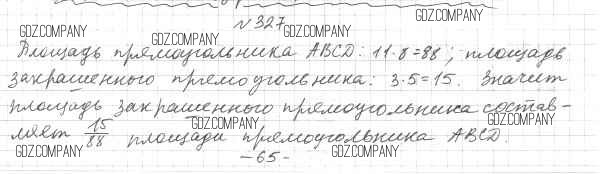 GDZ.COMPANY
№ 327
GDZ.COMPANY GDZ.COMPANY GDZ.COMPANY
Площадь прямоугольника ABCD: 11·8=88; площадь
закрашенного прямоугольника: 3·5=15. Значит
площадь закрашенного прямоугольника состав-
GDZ.COMPANY GDZ.COMPANY
ляет 15/88 площади прямоугольника ABCD.
GDZ.COMPANY GDZ.COMPANY
-65-